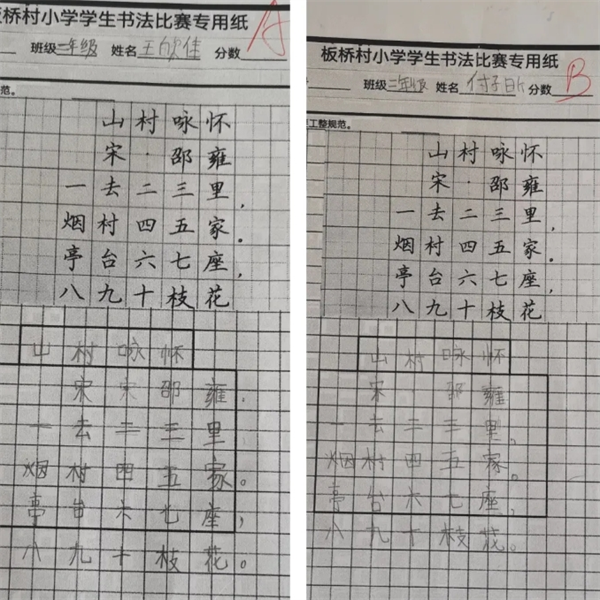 板桥村小学学生书法比赛专用纸
A
班级 二年级 姓名 王 佳 分数
范。
山村咏怀
宋·邵雍
一去二三里，
烟村四五家。
亭台六七座，
八九十枝花
山村咏怀
宋宋邵雍.
一去二三里
烟村四五家。
亭台六七座，
八九十枝花。
板桥村小学学生书法比赛专用纸
B
班级 二年级 姓名 付子 分数
工整规范。
山村咏怀
宋·邵雍
一去二三里，
烟村四五家。
亭台六七座，
八九十枝花
山村咏怀
宋 邵雍
一去二三里，
烟村四五家。
亭台六七座，
八九十枝花。